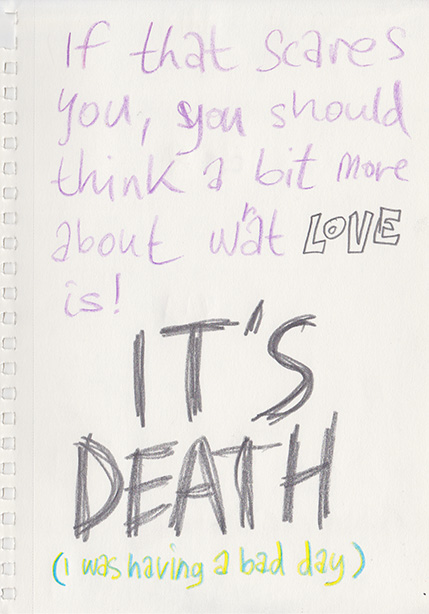 If that scares
you, you should
think a bit more
about what LOVE
is!
IT'S
DEATH
(i was having a bad day)